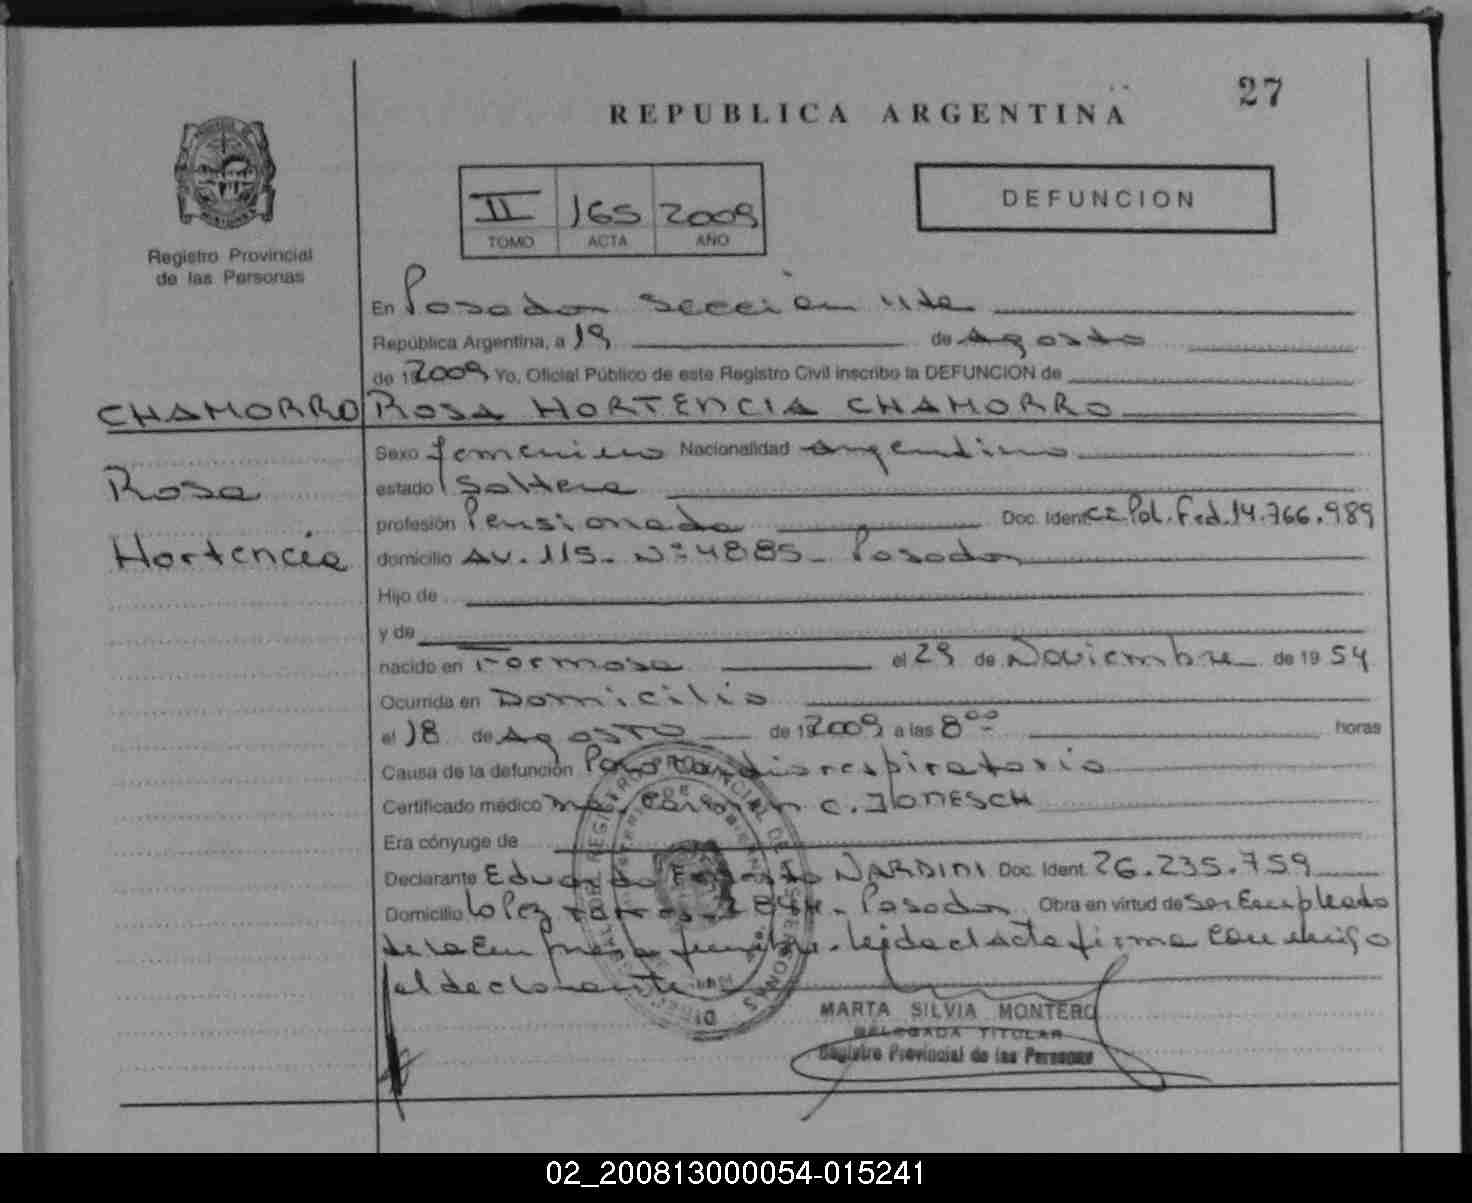 27
REPUBLICA ARGENTINA
DEFUNCION
II 165 2009
TOMO ACTA AÑO
Registro Provincial
de las Personas
En Posadas Sección 11ra
República Argentina, a 19 de Agosto
de 2009 Yo, Oficial Público de este Registro Civil inscribo la DEFUNCION de
CHAMORRO ROSA HORTENCIA CHAMORRO
Rosa
Hortencia
Sexo femenino Nacionalidad argentina
estado Soltera
profesión Pensionada Doc. Ident. C.I. Pol. Fed. 14.766.989
domicilio AV. 115 - Nº 4885 - Posadas
Hijo de
y de
nacido en Formosa el 29 de Noviembre de 19 54
Ocurrida en Domicilio
el 18 de Agosto de 2009 a las 8 00 horas
Causa de la defunción Paro Cardiorespiratorio
Certificado médico Carmen C. JONESCH
Era cónyuge de
Declarante Eduardo NARDINI Doc. Ident. 26.235.759
Domicilio Lopez Posadas Obra en virtud de Ser Empleado
de la Empresa funebre. leida el acta firma conmigo
el declarante
MARTA SILVIA MONTERO
DELEGADA TITULAR
Registro Provincial de las Personas
02_200813000054-015241